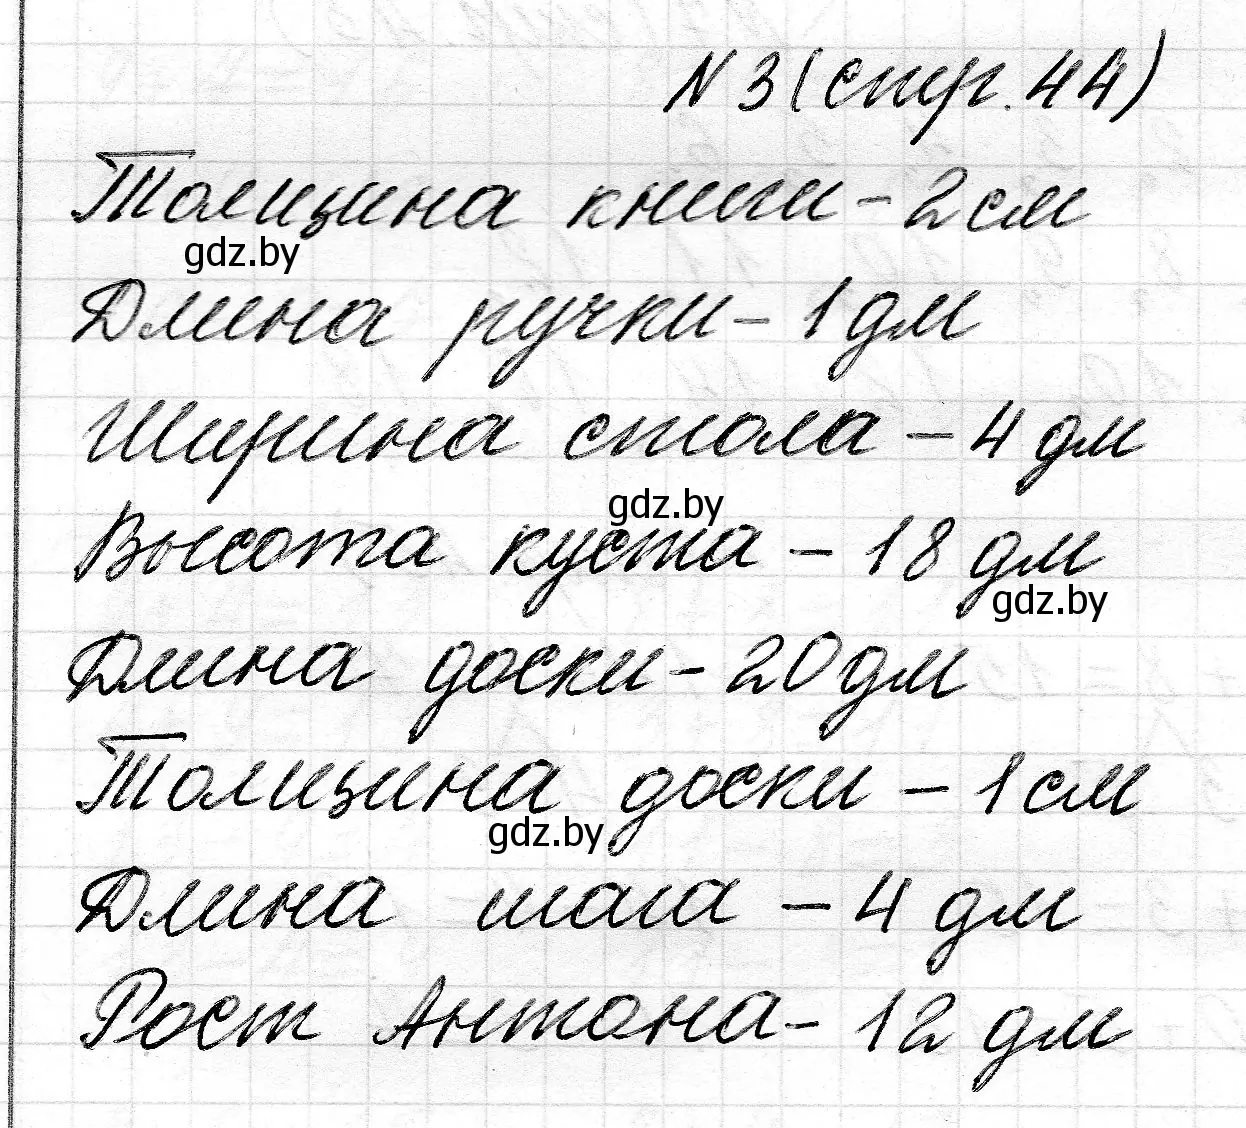 N 3 (стр. 44)
Толщина книги - 2 см
gdz.by
Длина ручки - 1 дм
Ширина стола - 4 дм
gdz.by
Высота куста - 18 дм
gdz.by
Длина доски - 20 дм
Толщина доски - 1 см
gdz.by
Длина шага - 4 дм
Рост Антона - 12 дм